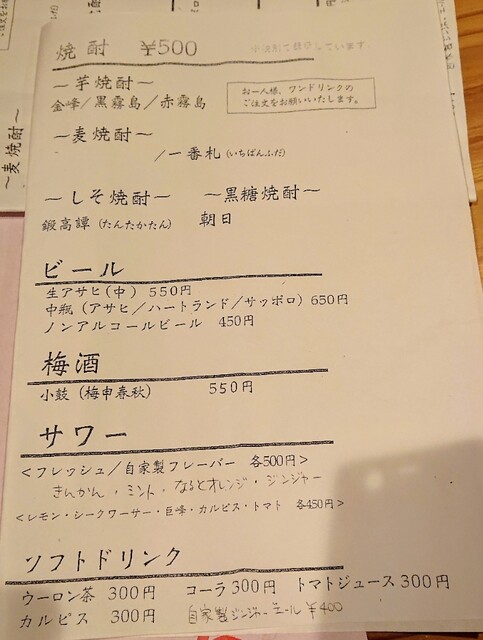 焼酎 ¥500
～芋焼酎～
金峰／黒霧島／赤霧島
お一人様、ワンドリンクの
ご注文をお願いいたします。
～麦焼酎～
／一番札(いちばんふだ)
～しそ焼酎～ ～黒糖焼酎～
鍛高譚(たんたかたん) 朝日
ビール
生アサヒ(中) 550円
中瓶(アサヒ／ハートランド／サッポロ) 650円
ノンアルコールビール 450円
梅酒
小鼓(梅申春秋) 550円
サワー
<フレッシュ／自家製フレーバー 各500円>
きんかん・ミント・なるとオレンジ・ジンジャー
<レモン・シークワーサー・巨峰・カルピス・トマト 各450円>
ソフトドリンク
ウーロン茶 300円 コーラ 300円 トマトジュース 300円
カルピス 300円 自家製ジンジャーエール ¥400
～麦焼酎～